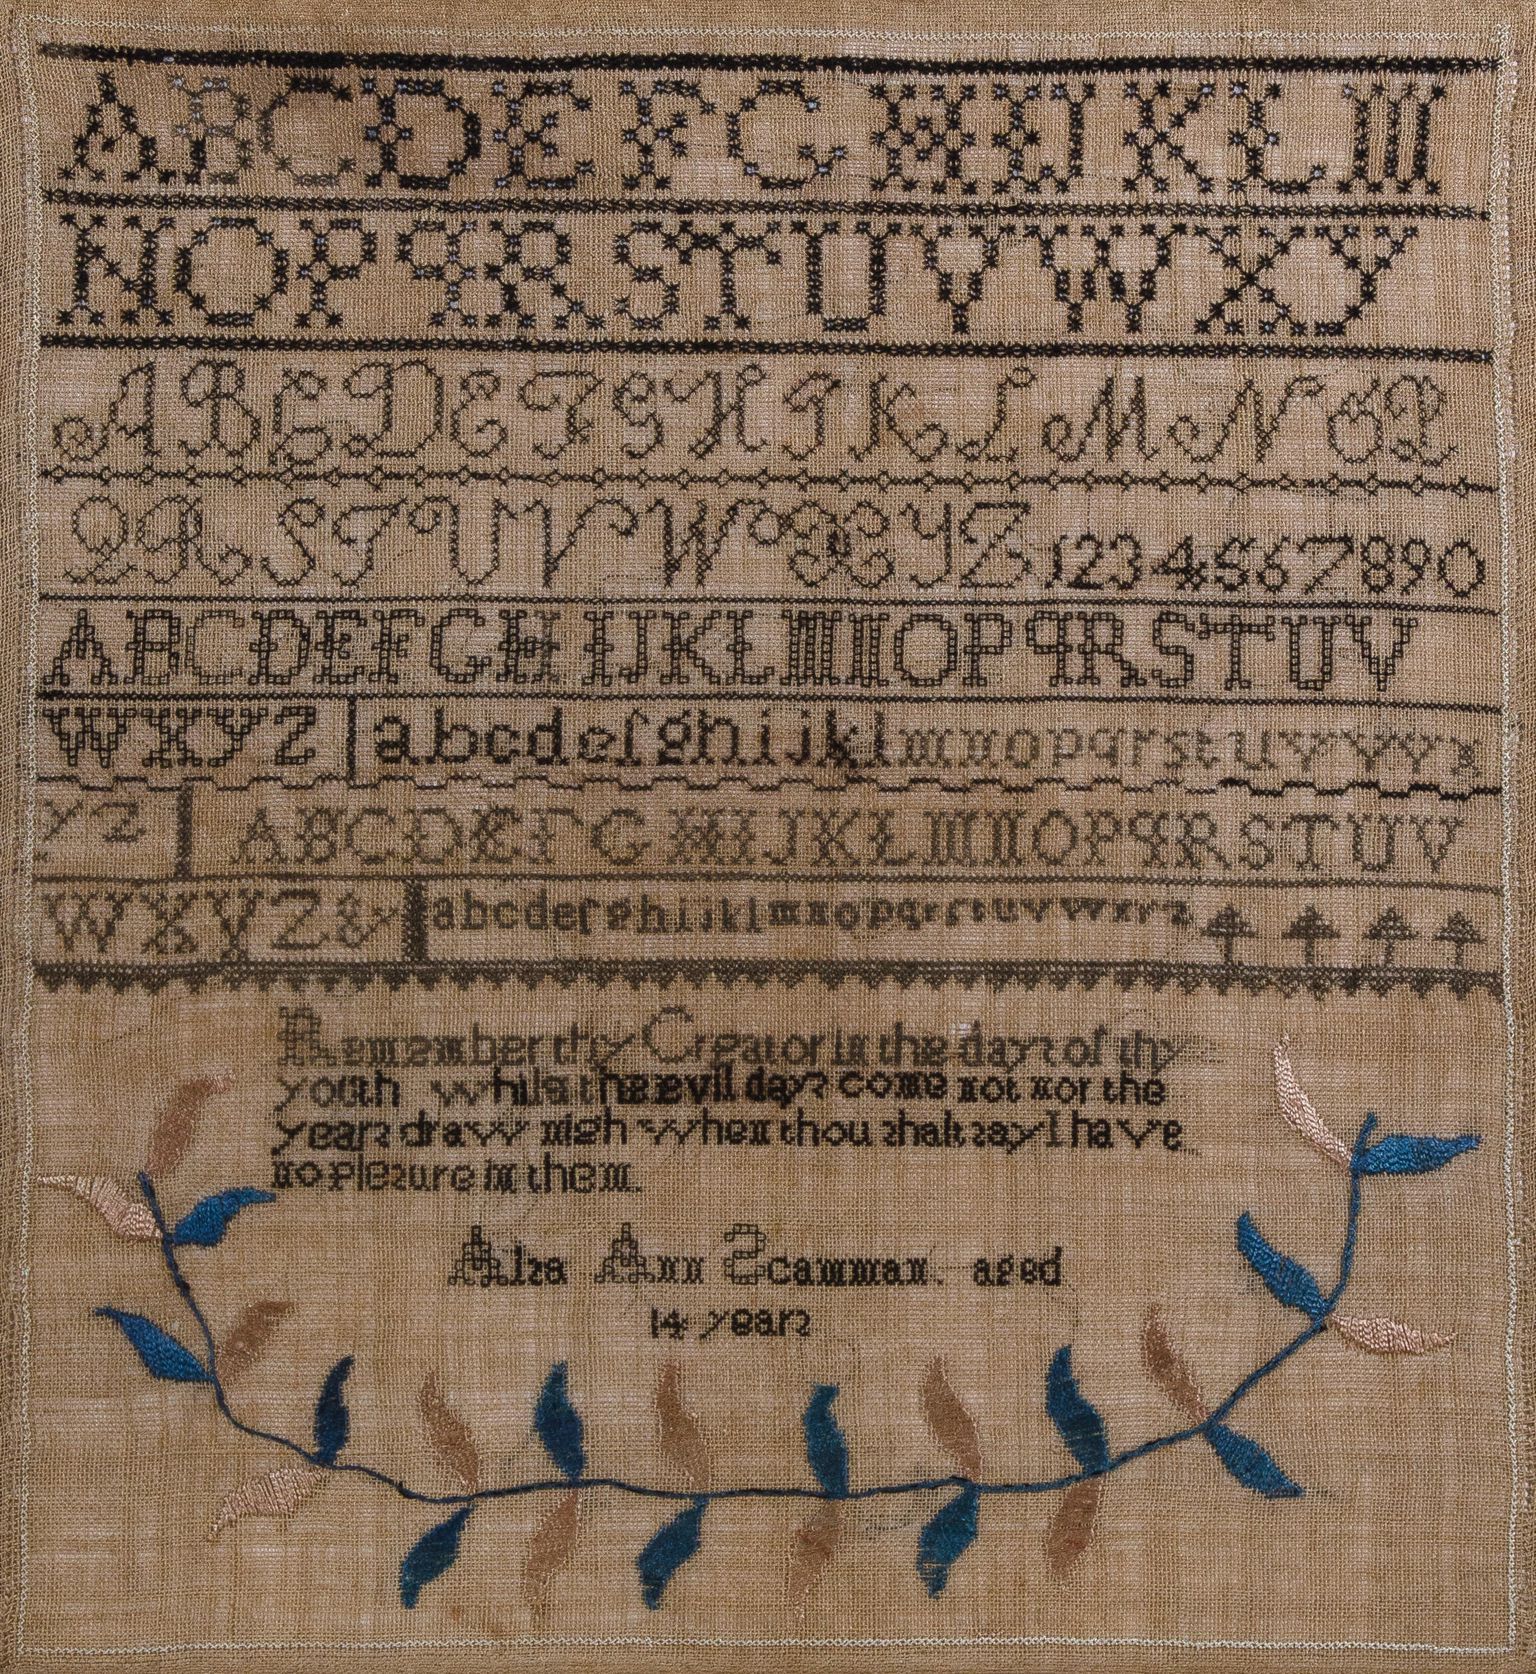 A B C D E F G H I J K L M
N O P Q R S T U V W X Y
A B C D E F G H I K L M N O P
Q R S T U V W X Y Z 1 2 3 4 5 6 7 8 9 0
A B C D E F G H I J K L M N O P Q R S T U V
W X Y Z a b c d e f g h i j k l m n o p q r s t u v
y z A B C D E F G H I J K L M N O P Q R S T U V
W X Y Z & a b c d e f g h i j k l m n o p q r s t u v w x y z
Remember thy Creator in the days of thy
youth while the evil days come not nor the
years draw nigh when thou shalt say I have
no plesure in them.
Alsa Ann Scamman. aged
14 years